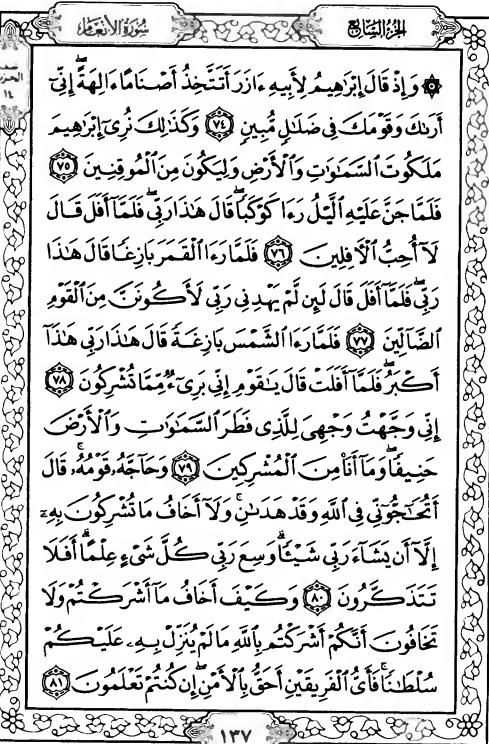 سُورَةُ الأَنعَام
الجُزْءُ السَّابِعُ
نصف
الحزب
١٤
۞ وَإِذْ قَالَ إِبْرَٰهِيمُ لِأَبِيهِ ءَازَرَ أَتَتَّخِذُ أَصْنَامًا ءَالِهَةً ۖ إِنِّىٓ
أَرَىٰكَ وَقَوْمَكَ فِى ضَلَٰلٍ مُّبِينٍ ٧٤ وَكَذَٰلِكَ نُرِىٓ إِبْرَٰهِيمَ
مَلَكُوتَ ٱلسَّمَٰوَٰتِ وَٱلْأَرْضِ وَلِيَكُونَ مِنَ ٱلْمُوقِنِينَ ٧٥
فَلَمَّا جَنَّ عَلَيْهِ ٱلَّيْلُ رَءَا كَوْكَبًا ۖ قَالَ هَٰذَا رَبِّى ۖ فَلَمَّآ أَفَلَ قَالَ
لَآ أُحِبُّ ٱلْءَافِلِينَ ٧٦ فَلَمَّا رَءَا ٱلْقَمَرَ بَازِغًا قَالَ هَٰذَا
رَبِّى ۖ فَلَمَّآ أَفَلَ قَالَ لَئِن لَّمْ يَهْدِنِى رَبِّى لَأَكُونَنَّ مِنَ ٱلْقَوْمِ
ٱلضَّآلِّينَ ٧٧ فَلَمَّا رَءَا ٱلشَّمْسَ بَازِغَةً قَالَ هَٰذَا رَبِّى هَٰذَآ
أَكْبَرُ ۖ فَلَمَّآ أَفَلَتْ قَالَ يَٰقَوْمِ إِنِّى بَرِىٓءٌ مِّمَّا تُشْرِكُونَ ٧٨
إِنِّى وَجَّهْتُ وَجْهِىَ لِلَّذِى فَطَرَ ٱلسَّمَٰوَٰتِ وَٱلْأَرْضَ
حَنِيفًا ۖ وَمَآ أَنَا۠ مِنَ ٱلْمُشْرِكِينَ ٧٩ وَحَآجَّهُۥ قَوْمُهُۥ ۚ قَالَ
أَتُحَٰٓجُّوٓنِّى فِى ٱللَّهِ وَقَدْ هَدَىٰنِ ۚ وَلَآ أَخَافُ مَا تُشْرِكُونَ بِهِۦٓ
إِلَّآ أَن يَشَآءَ رَبِّى شَيْـًٔا ۗ وَسِعَ رَبِّى كُلَّ شَىْءٍ عِلْمًا ۗ أَفَلَا
تَتَذَكَّرُونَ ٨٠ وَكَيْفَ أَخَافُ مَآ أَشْرَكْتُمْ وَلَا
تَخَافُونَ أَنَّكُمْ أَشْرَكْتُم بِٱللَّهِ مَا لَمْ يُنَزِّلْ بِهِۦ عَلَيْكُمْ
سُلْطَٰنًا ۚ فَأَىُّ ٱلْفَرِيقَيْنِ أَحَقُّ بِٱلْأَمْنِ ۖ إِن كُنتُمْ تَعْلَمُونَ ٨١
١٣٧